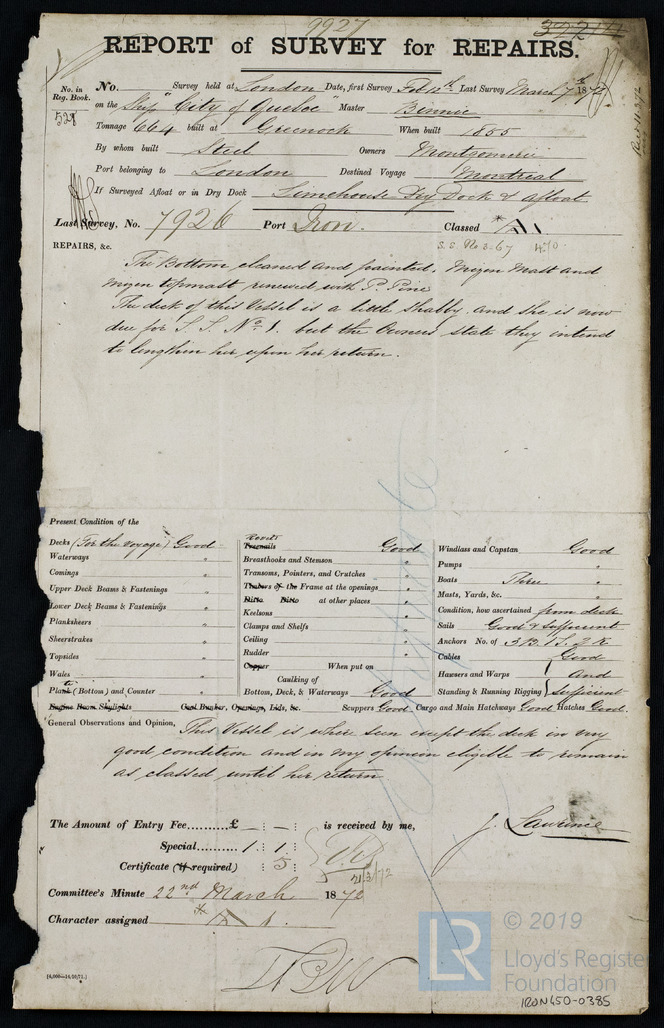 9927
REPORT of SURVEY for REPAIRS.
No. in Reg. Book.
528
No. Survey held at London Date, first Survey Feb 12th Last Survey March 7th 1872
on the Ship "City of Quebec" Master Binnie
Tonnage 664 built at Greenock When built 1855
By whom built Steel Owners Montgomerie
Port belonging to London Destined Voyage Montreal
If Surveyed Afloat or in Dry Dock Limehouse Dry Dock & afloat
Last Survey, No. 7926 Port Iron. Classed A1
S.S. No 3-67
REPAIRS, &c.
The Bottom cleaned and painted. Mizen Mast and
mizen topmast renewed with P. Pine
The deck of this Vessel is a little shabby and she is now
due for S.S. No. 1. but the Owners state they intend
to lengthen her upon her return.
Present Condition of the
Decks (For the voyage) Good
Waterways "
Comings "
Upper Deck Beams & Fastenings "
Lower Deck Beams & Fastenings "
Planksheers "
Sheerstrakes "
Topsides "
Wales "
Plank (Bottom) and Counter "
Engine Room Skylights
Rivets
Treenails Good
Breasthooks and Stemson "
Transoms, Pointers, and Crutches "
Timbers of the Frame at the openings "
Ditto Ditto at other places "
Keelsons "
Clamps and Shelfs "
Ceiling "
Rudder "
Copper When put on
Caulking of
Bottom, Deck, & Waterways Good
Coal Bunker, Openings, Lids, &c.
Windlass and Capstan Good
Pumps "
Boats Three "
Masts, Yards, &c. "
Condition, how ascertained from deck
Sails Good & sufficient
Anchors No. of 3 B. 1 S. 2 K
Cables Good
Hawsers and Warps and
Standing & Running Rigging Sufficient
Scuppers Good Cargo and Main Hatchways Good Hatches Good.
General Observations and Opinion, This Vessel is where seen except the deck in very
good condition and in my opinion eligible to remain
as classed until her return
The Amount of Entry Fee..........£ — : — : — is received by me,
Special.......... 1 : 1 :
Certificate (if required) 5
21/3/72
J. Lawrence
Committee's Minute 22nd March 1872
Character assigned A 1
LR
© 2019
Lloyd's Register
Foundation
IRON450-0385